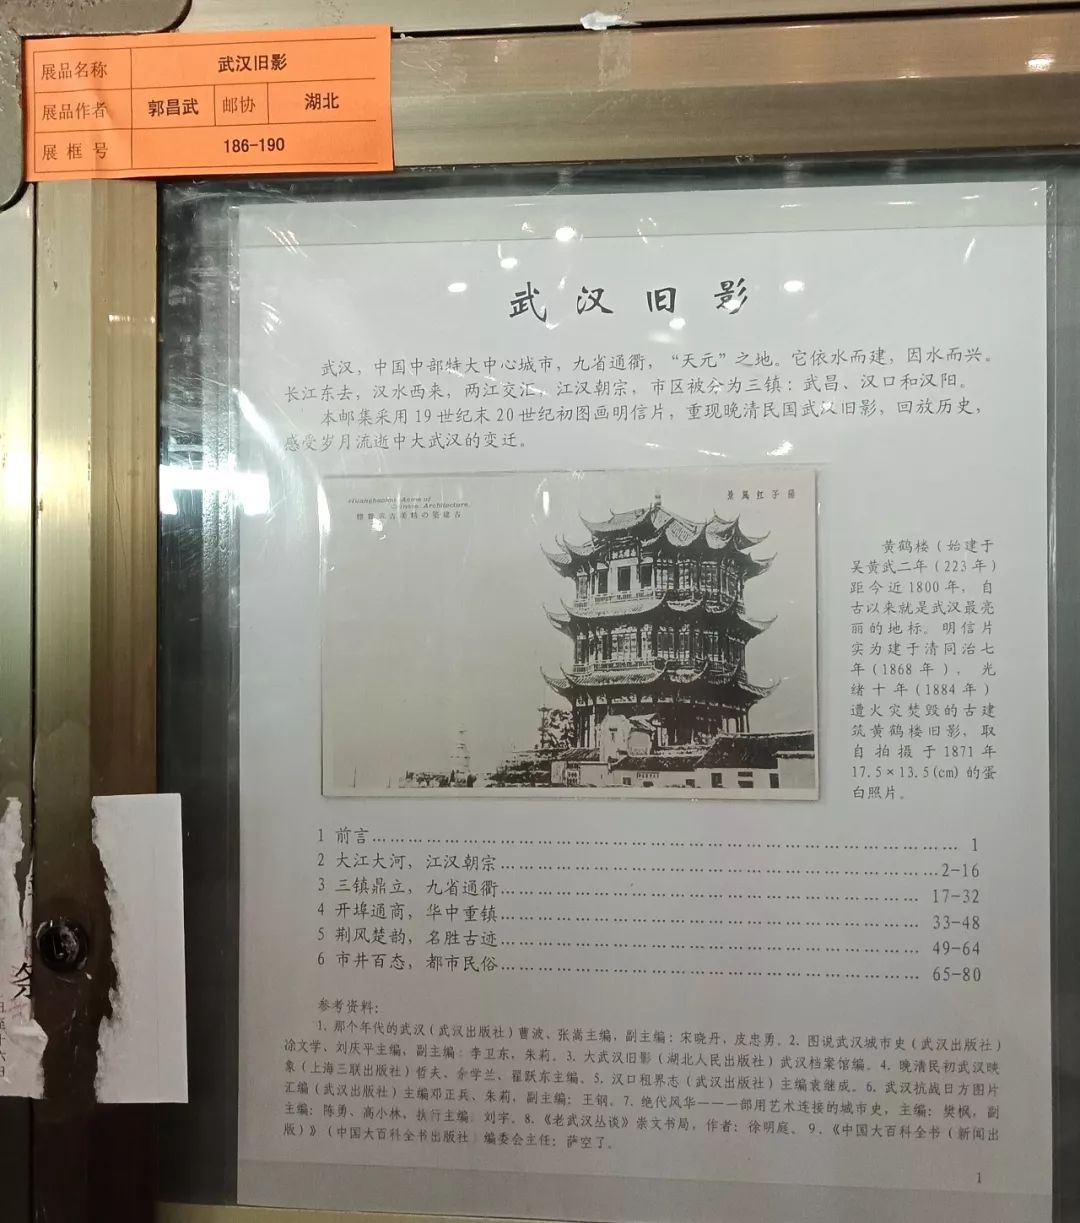 展品名称 武汉旧影
展品作者 郭昌武 邮协 湖北
展框号 186-190
武汉旧影
武汉，中国中部特大中心城市，九省通衢，“天元”之地。它依水而建，因水而兴。
长江东去，汉水西来，两江交汇，江汉朝宗，市区被分为三镇：武昌、汉口和汉阳。
本邮集采用19世纪末20世纪初图画明信片，重现晚清民国武汉旧影，回放历史，
感受岁月流逝中大武汉的变迁。
Chinese Architecture.
景風江子揚
黄鹤楼（始建于
吴黄武二年（223年）
距今近1800年，自
古以来就是武汉最亮
丽的地标。明信片
实为建于清同治七
年（1868年），光
绪十年（1884年）
遭火灾焚毁的古建
筑黄鹤楼旧影，取
自拍摄于1871年
17.5×13.5(cm)的蛋
白照片。
1 前言……………………………………………………………… 1
2 大江大河，江汉朝宗………………………………………………2-16
3 三镇鼎立，九省通衢……………………………………………… 17-32
4 开埠通商，华中重镇……………………………………………… 33-48
5 荆风楚韵，名胜古迹……………………………………………… 49-64
6 市井百态，都市民俗……………………………………………… 65-80
参考资料：
1. 那个年代的武汉（武汉出版社）曹波、张嵩主编，副主编：宋晓丹，皮忠勇。2. 图说武汉城市史（武汉出版社）
涂文学、刘庆平主编，副主编：李卫东，朱莉。3. 大武汉旧影（湖北人民出版社）武汉档案馆编。4. 晚清民初武汉映
象（上海三联出版社）哲夫、余学兰、翟跃东主编。5. 汉口租界志（武汉出版社）主编袁继成。6. 武汉抗战日方图片
汇编（武汉出版社）主编邓正兵、朱莉，副主编：王钢。7. 绝代风华———一部用艺术连接的城市史，主编：樊枫，副
主编：陈勇、高小林，执行主编：刘宇。8.《老武汉丛谈》崇文书局，作者：徐明庭。9.《中国大百科全书（新闻出
版）》（中国大百科全书出版社）编委会主任：萨空了。
1